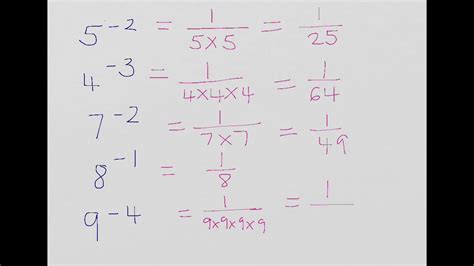 5⁻² = 1/(5×5) = 1/25
4⁻³ = 1/(4×4×4) = 1/64
7⁻² = 1/(7×7) = 1/49
8⁻¹ = 1/8
9⁻⁴ = 1/(9×9×9×9) = 1/